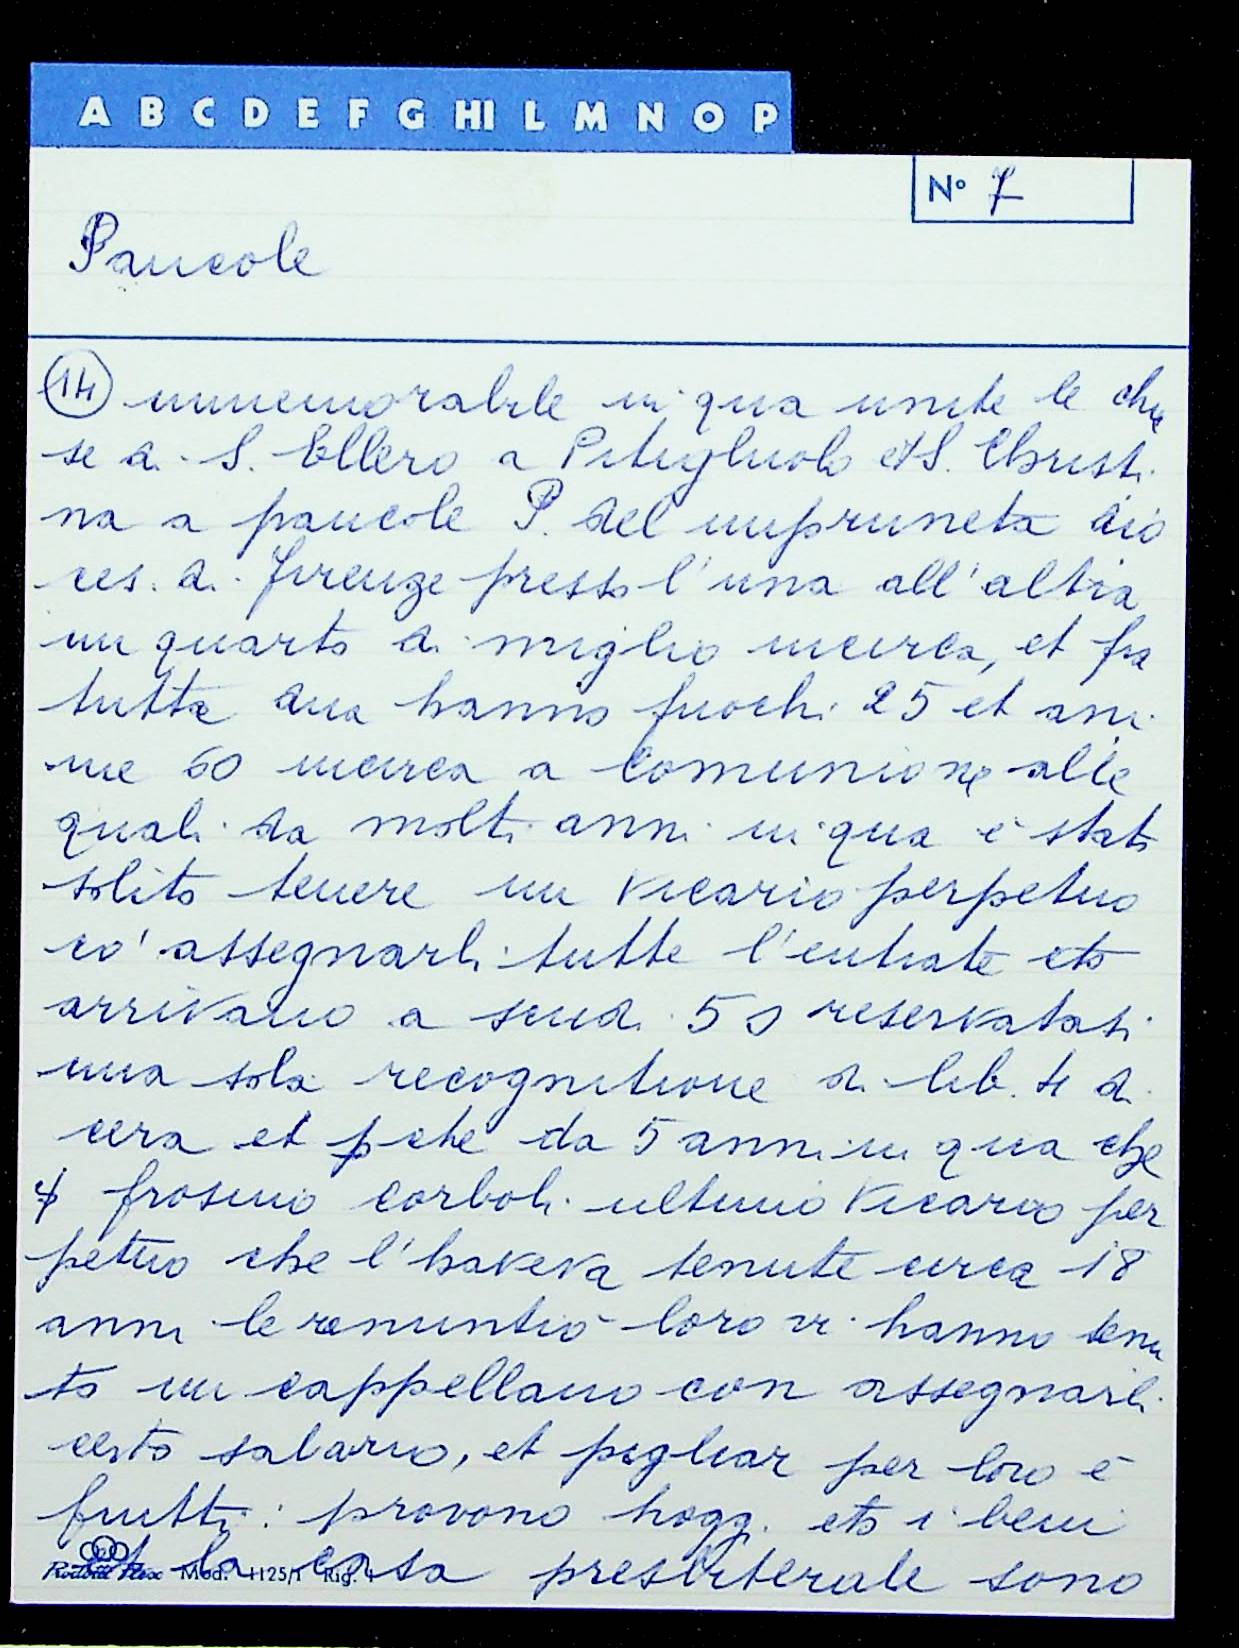 A B C D E F G HI L M N O P
N° 7
Pancole
14 immemorabile in qua unite le chie
se di S. Ellero a Pitigliuolo et S. Christi
na a pancole P. del impruneta dio
ces. di firenze presso l'una all'altra
un quarto di miglio incirca, et fra
tutta dua hanno fuochi 25 et ani
me 60 incirca a comunione alle
quali da molti anni in qua è stato
solito tenere un Vicario perpetuo
co' assegnarli tutte l'entrate
arrivano a scudi 50 reservatasi
una sola recognitione di lib. 4 di
cera et pche da 5 anni in qua che
frosino corboli ultimo Vicario per
petuo che l'haveva tenute circa 18
anni le renuntiò loro vi hanno tenu
to un cappellano con assegnarli
certo salario, et pigliar per loro e
frutti: provono hoggi i beni
et la casa presbiterale sono
Mod. 1125/1 Rig. 1